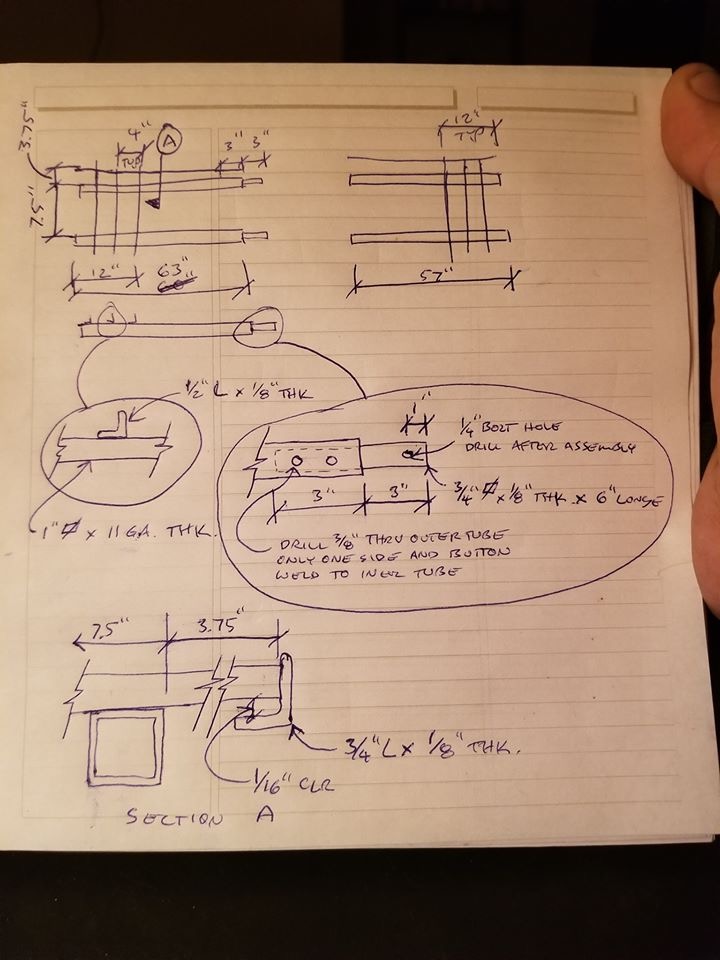 3.75"
4"
TYP
A
3" 3"
12"
TYP
7.5"
12" 63"
57"
1/2" L x 1/8" THK
1"
1/4" BOLT HOLE
DRILL AFTER ASSEMBLY
3" 3"
3/4" x 1/8" THK x 6" LONGE
1" x 11 GA. THK.
DRILL 3/8" THRU OUTER TUBE
ONLY ONE SIDE AND BUTTON
WELD TO INER TUBE
7.5" 3.75"
3/4" L x 1/8" THK.
1/16" CLR
SECTION A